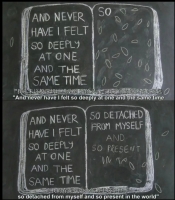 AND NEVER
HAVE I FELT
SO DEEPLY
AT ONE
AND THE
SAME TIME
SO
"And never have I felt so deeply at one and the same time
AND NEVER
HAVE I FELT
SO DEEPLY
AT ONE
AND THE
SAME TIME
SO DETACHED
FROM MYSELF
AND
SO PRESENT
IN
so detached from myself and so present in the world"